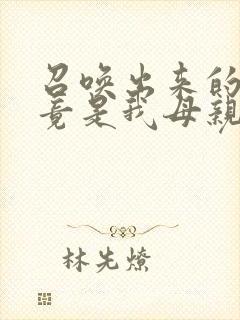 召唤出来的
竟是我母親
林先燎